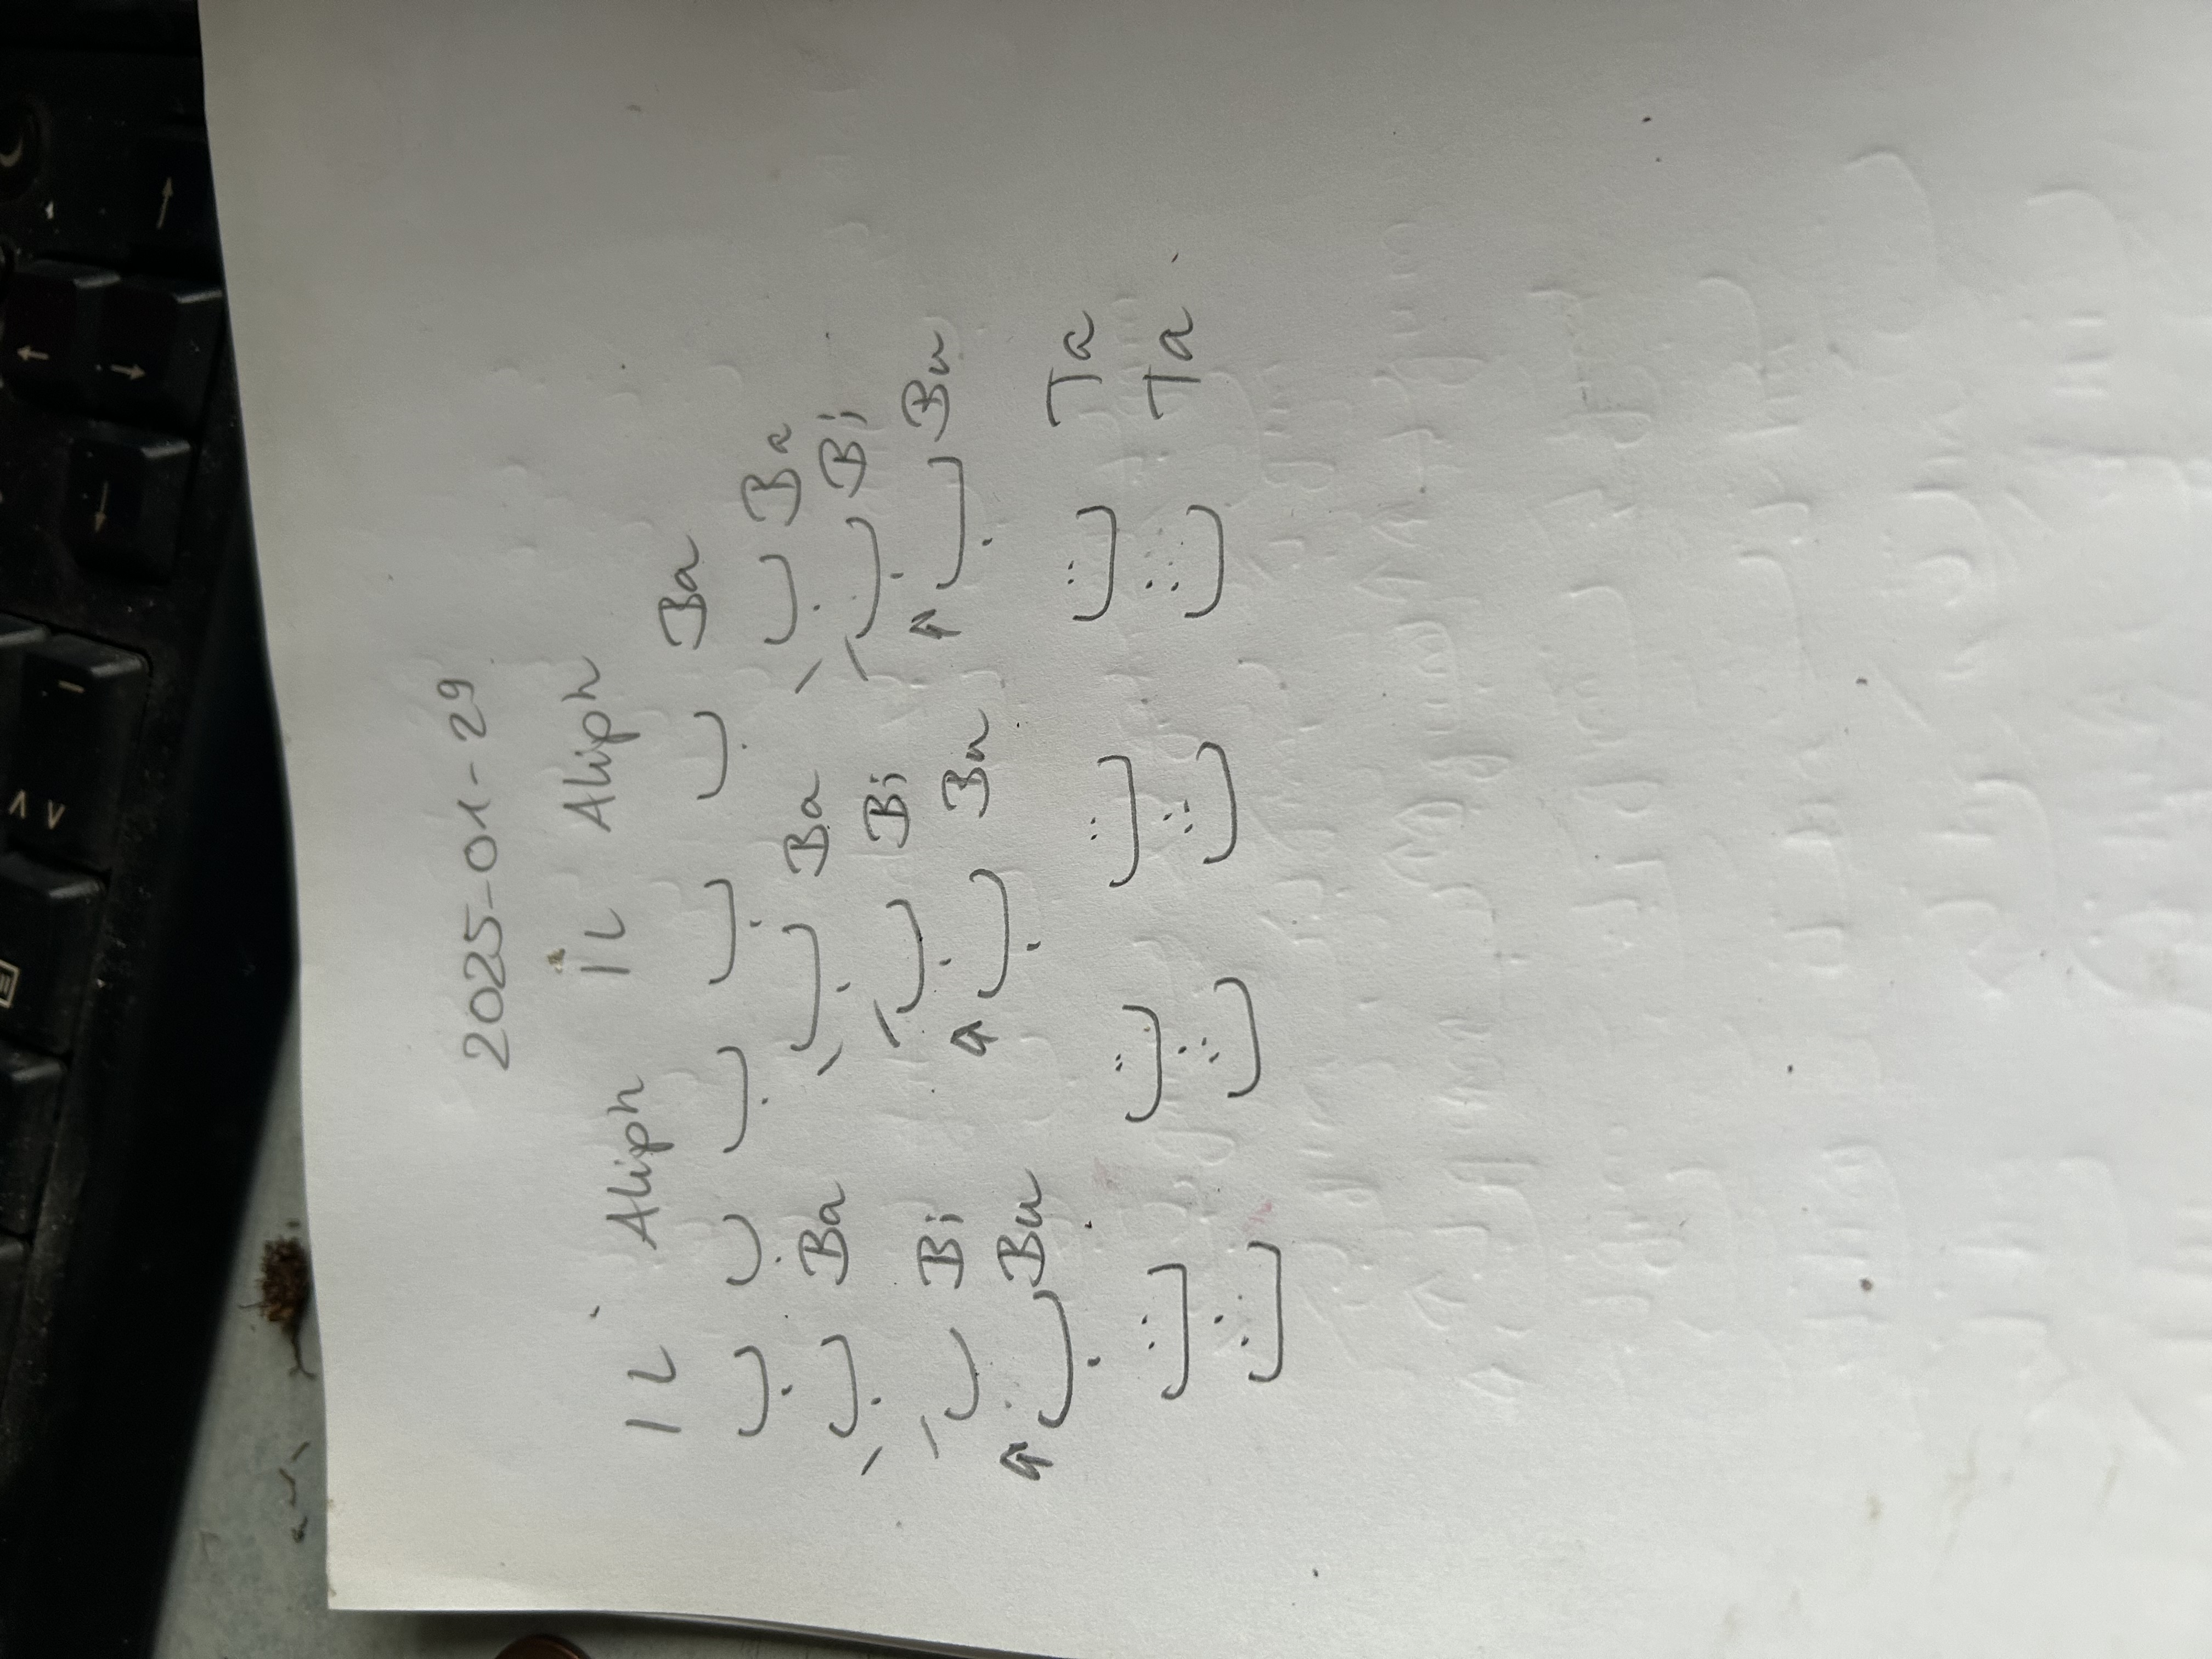 2025-01-29
١ L Aliph ١ L Aliph
ب ب ب ب ب Ba
بَ Ba بَ Ba بَ Ba
بِ Bi بِ Bi بِ Bi
بُ Bu بُ Bu بُ Bu
ت ت ت ت Ta
ث ث ث ث Ta